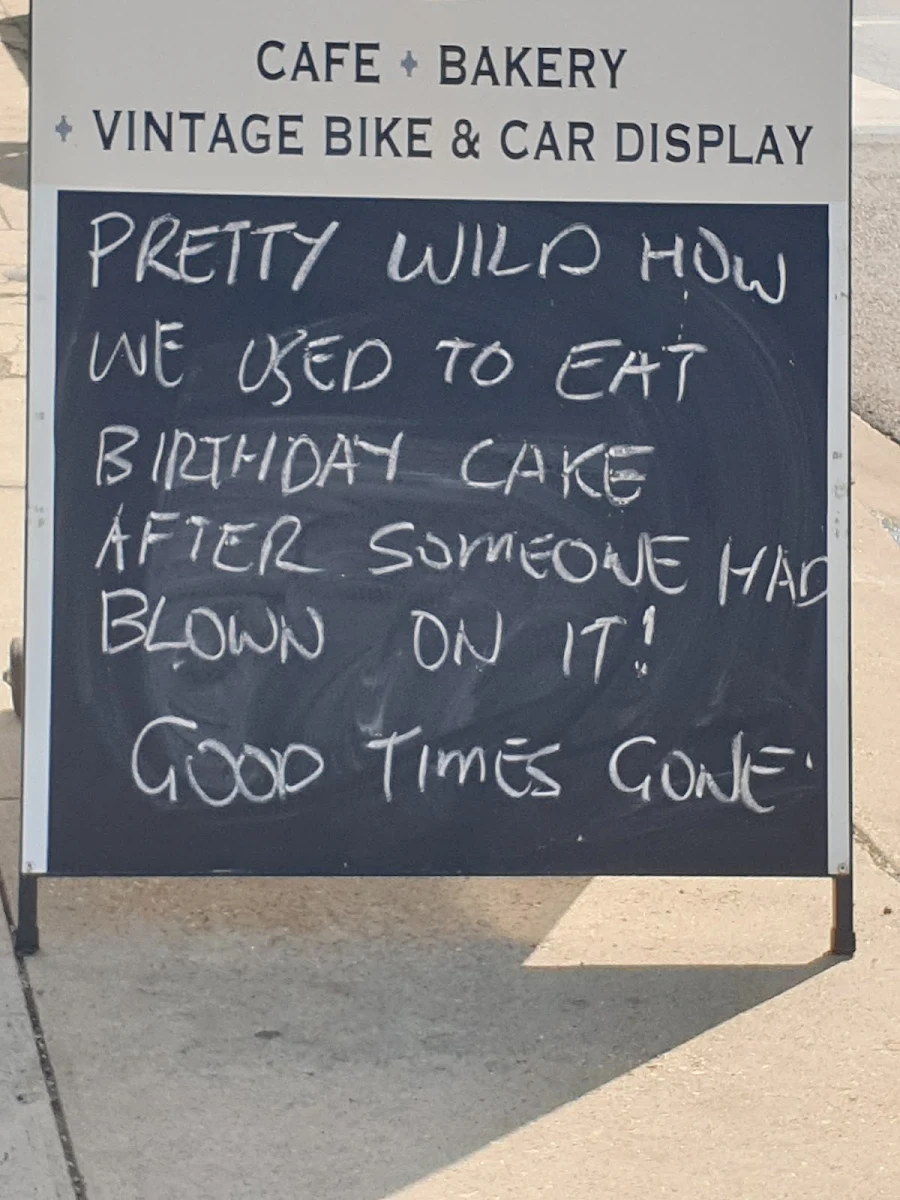 CAFE + BAKERY
+ VINTAGE BIKE & CAR DISPLAY
PRETTY WILD HOW
WE USED TO EAT
BIRTHDAY CAKE
AFTER SOMEONE HAD
BLOWN ON IT!
GOOD TIMES GONE.